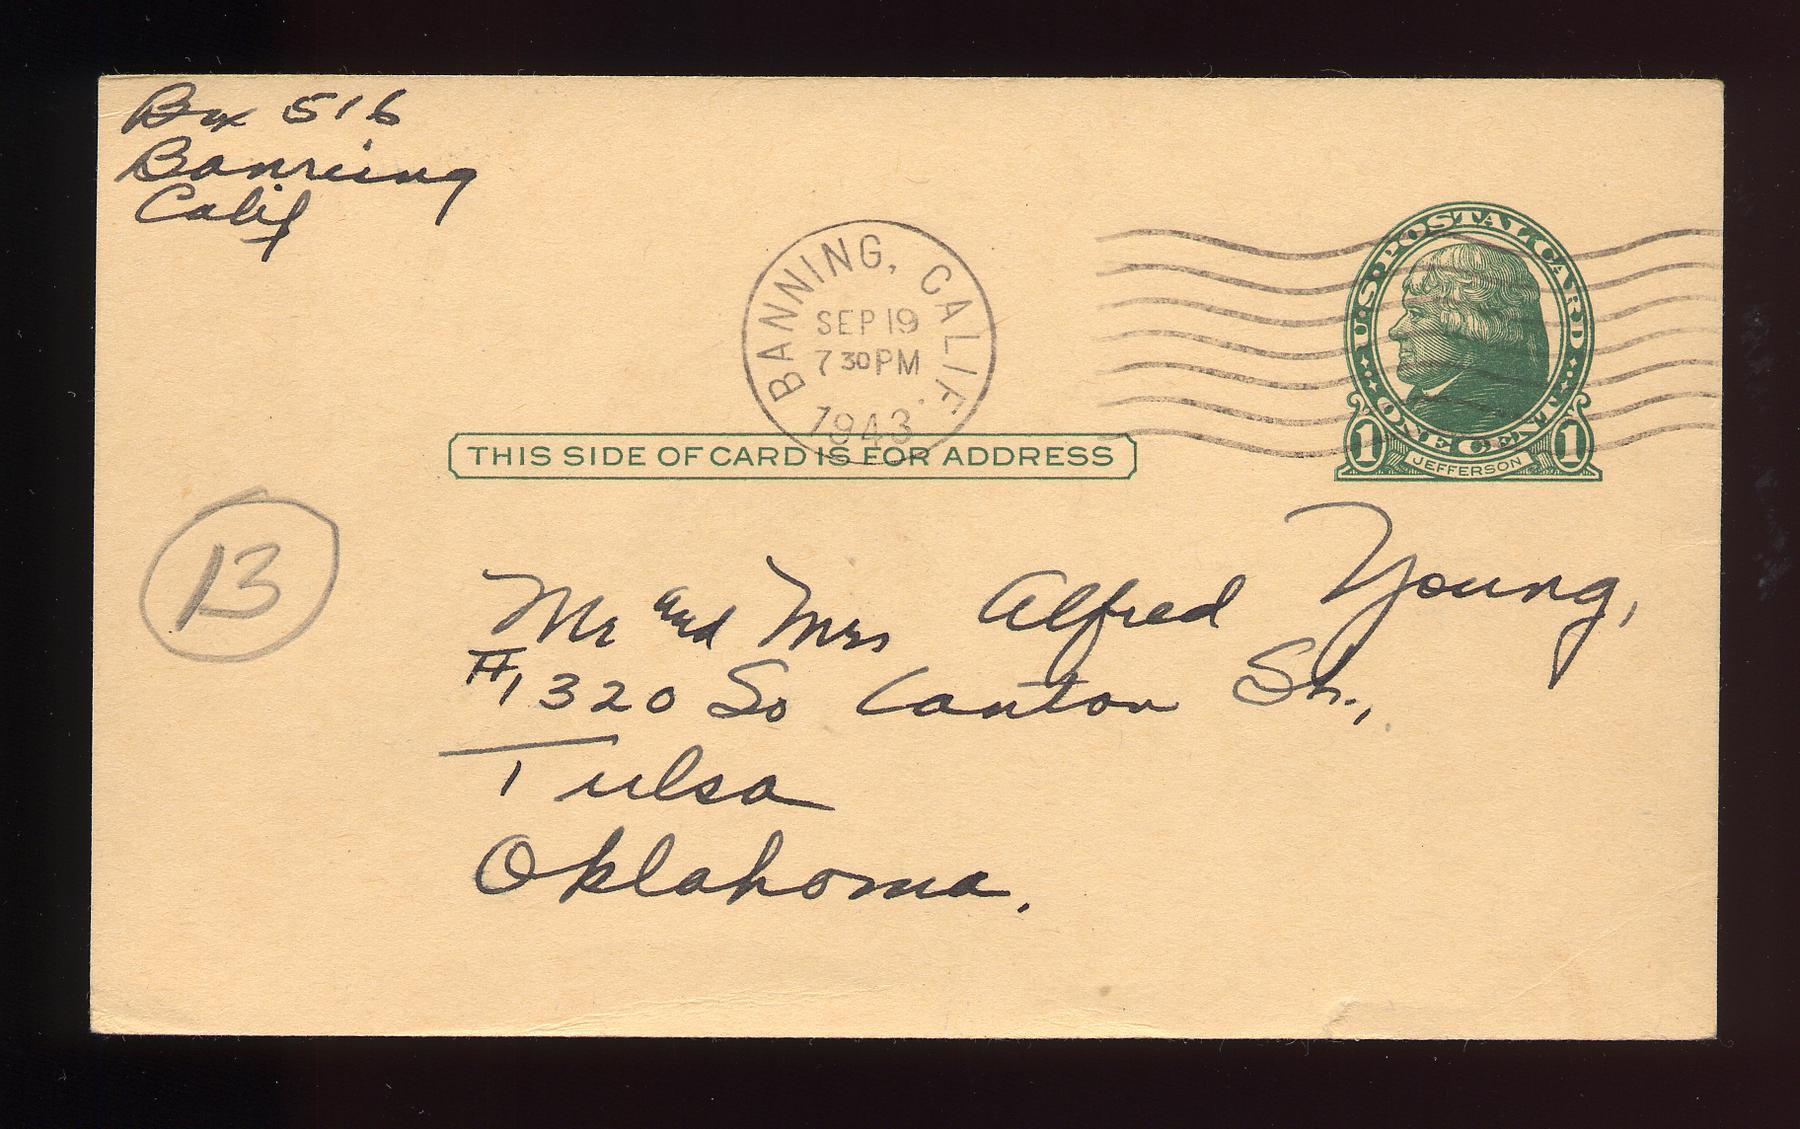 Box 516
Banning
Calif
BANNING, CALIF.
SEP 19
7 30 PM
1943
U·S·POSTAL CARD
ONE CENT
1 JEFFERSON 1
THIS SIDE OF CARD IS FOR ADDRESS
13
Mr and Mrs Alfred Young,
#1320 So Canton St.,
Tulsa
Oklahoma.